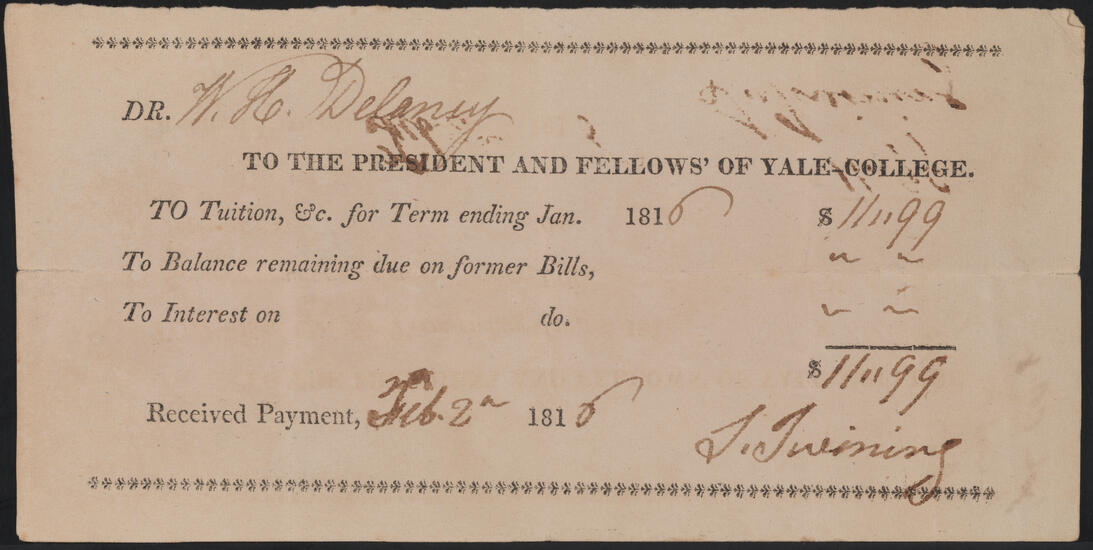 DR. W. H. Delancy
TO THE PRESIDENT AND FELLOWS' OF YALE-COLLEGE.
TO Tuition, &c. for Term ending Jan. 1816 $ 11"99
To Balance remaining due on former Bills, " "
To Interest on do. " "
$ 11"99
Received Payment, Feb. 2d 1816
S. Twining